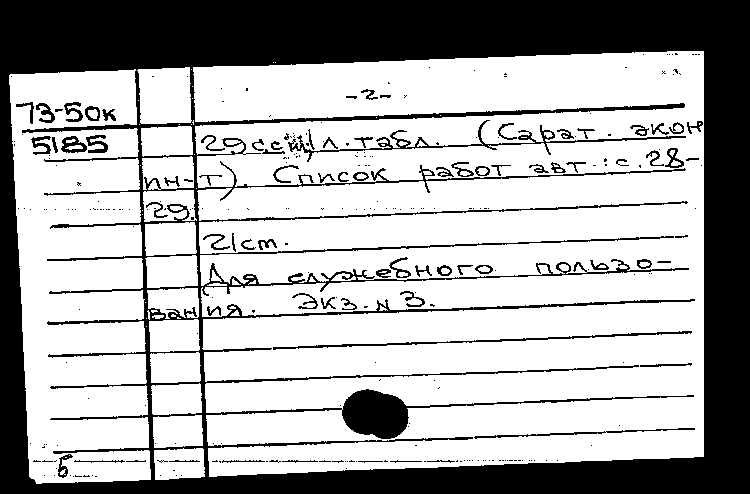 -2-
73-50к
5185
29 с. л. табл. (Сарат. экон
ин-т). Список работ авт.: с. 28-
29.
21см.
Для служебного пользо-
вания. Экз. № 3.
Б